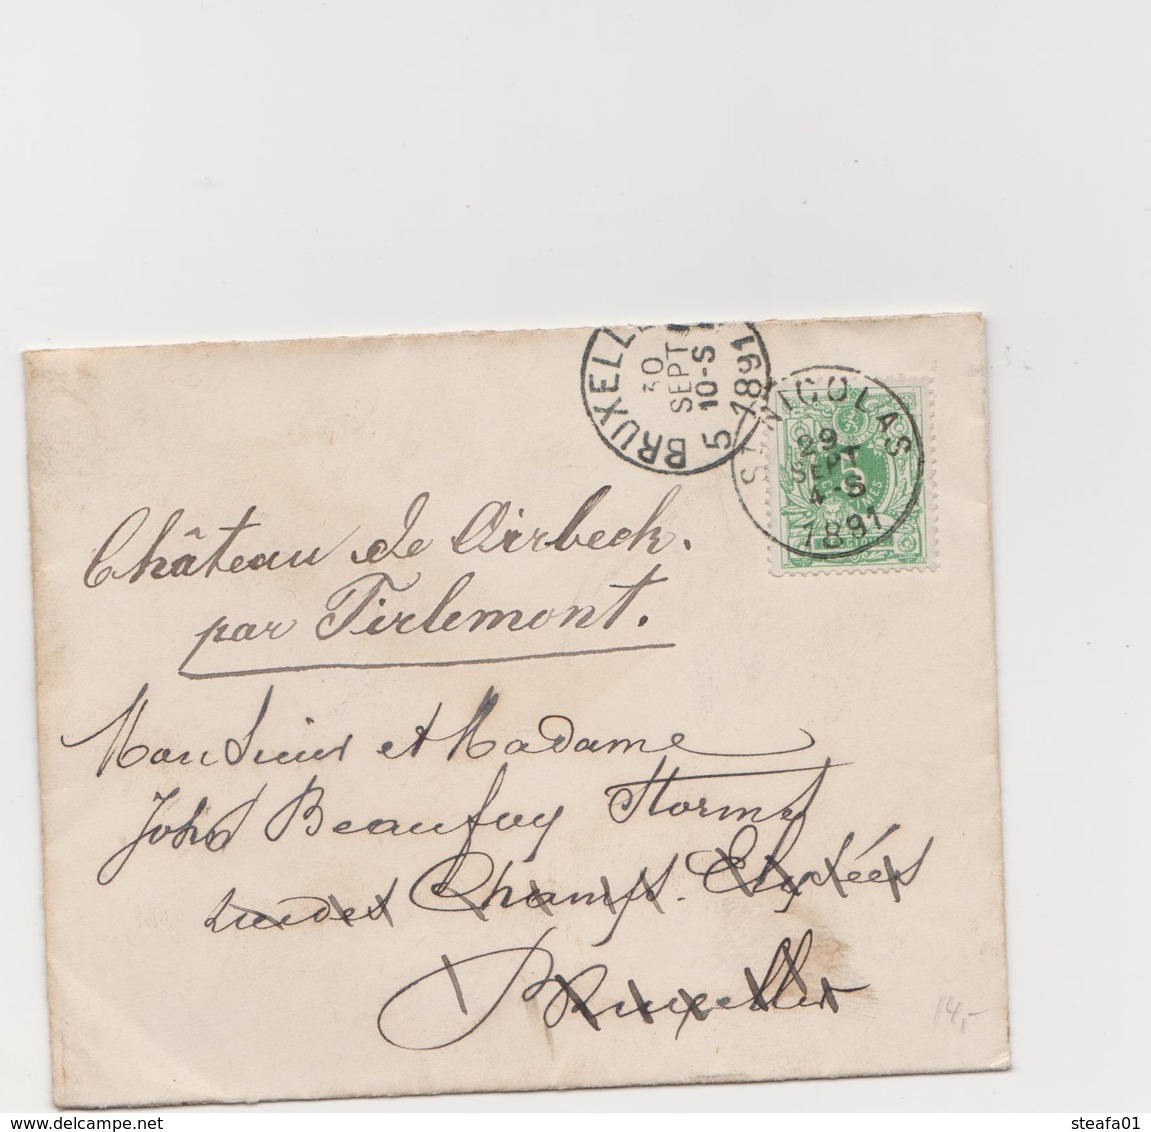 BRUXELL
30
SEPT
10-S
5 1891
ST NICOLAS
29
SEPT
4-S
1891
5
Château de Oirbeck.
par Tirlemont.
Monsieur et Madame
John Beaufoy Storms
rue des Champs. Elysées
Bruxelles
14,-
www.delcampe.net
steafa01